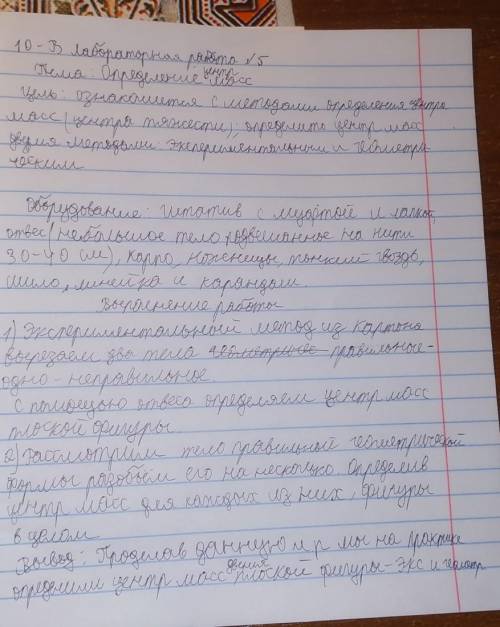 10-В Лабораторная работа №5
Тема: Определение центр масс
Цель: ознакомится с методами определения центра
масс (центра тяжести), определить центр масс
двумя методами: экспериментальным и геометри-
ческим
Оборудование: штатив с муфтой и лапкой,
отвес (небольшое тело подвешанное на нити
30-40 см), карто, ножницы, тонкий гвоздь,
шило, линейка и карандаш.
Выполнение работы
1) Экспериментальный метод из картона
вырезаем два тела правильные-
одно-неправильное.
С помощью отвеса определяем центр масс
плоской фигуры
2) Рассмотрим тело правильный геометрической
формы разобьём его на несколько. Определив
центр масс для каждых из них, фигуры
в целом
Вывод: Проделав данную л р мы на практике
определили центр масс двумя плоской фигуры-экс и геометр